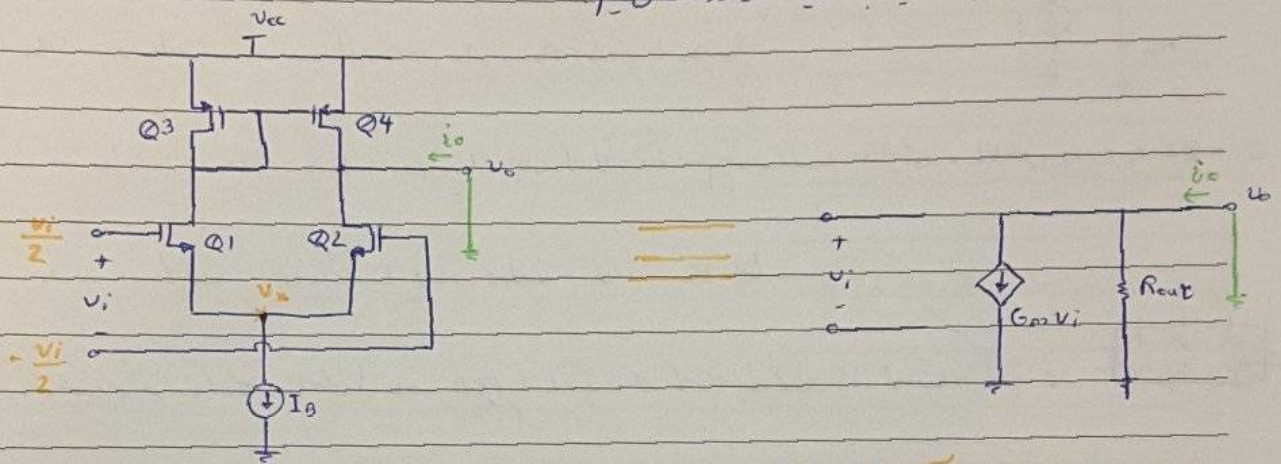 Vcc
Q3
Q4
io
vo
vi/2
+
Q1
Q2
vi
-
vx
- vi/2
IB
io
vo
+
vi
-
Gm vi
Rout